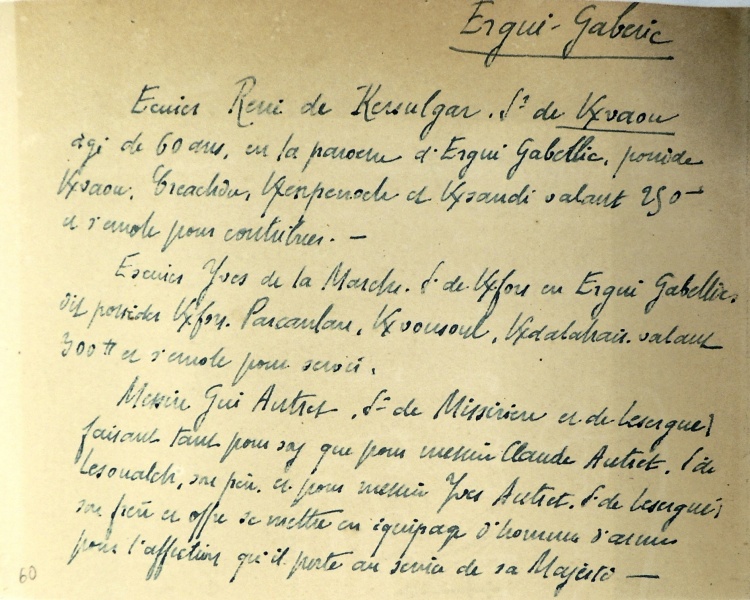 Ergui-Gaberic
Ecuier René de Kersulgar. Sr de Kvaou
âgé de 60 ans, en la paroem d'Ergui Gabellic, possède
Kvaou, Creachdu, et valant 250
et s'enrole pour contribuer. —
Escuier Yves de la Marche. Sr de Kfors en Ergui Gabellic.
dit posséder Kfors. Parcanlan, Kvonsoul, Kdalahais. valant
300 tt et s'enrole pour servir.
Messire Gui Autret, Sr de Missirien et de Lesergué,
faisant tant pour soy que pour messire Claude Autret. Sr de
Lesoualch, son père. et pour messire Yves Autret. Sr de Lesergué,
son frère et offre se mettre en équipage d'homme d'armes
pour l'affection qu'il porte au service de sa Majesté —
60